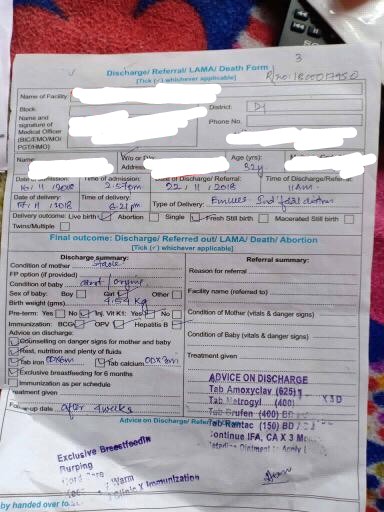 3
Discharge/ Referral/ LAMA/ Death Form
[Tick (✓) whichever applicable]
R.no: 180001795
Name of Facility
Block:
District:
Name and signature of Medical Officer (BIC/EMO/MO/PGT/HMO)
Phone No.
Name
W/o or D/o
Address
Age (yrs):
32y
Date of admission: Time of admission: Date of Discharge/ Referral: Time of Discharge/Referral
16/11/2018 2:57pm 22/11/2018 11AM
Date of delivery: Time of delivery: Type of Delivery:
17/11/2018 6:21pm
Delivery outcome: Live birth Abortion Single Fresh Still birth Macerated Still birth
Twins/Multiple
Final outcome: Discharge/ Referred out/ LAMA/ Death/ Abortion
[Tick (✓) whichever applicable]
Discharge summary: Referral summary:
Condition of mother Stable
Reason for referral
FP option (if provided)
Condition of baby
Facility name (referred to)
Sex of baby: Boy Girl Other
Birth weight (gms) 4.54 Kg
Condition of Mother (vitals & danger signs)
Pre-term: Yes No Inj. Vit K1: Yes No
Immunization: BCG OPV Hepatitis B
Condition of Baby (vitals & danger signs)
Advice on discharge:
Counselling on danger signs for mother and baby
Rest, nutrition and plenty of fluids
Treatment given
Tab iron Tab calcium
Exclusive breastfeeding for 6 months
Immunization as per schedule
Treatment given
Follow-up date after 4 weeks
ADVICE ON DISCHARGE
Tab Amoxyclav (625)
Tab Metrogyl (400) X 3D
Tab Brufen (400) BD
Tab Rantac (150) BD
Continue IFA, CA X 3
Ointment
Advice on Discharge/ Referral
Exclusive Breastfeedin
Burping
Cord Care
Warm
Clinic X Immunization
by handed over to